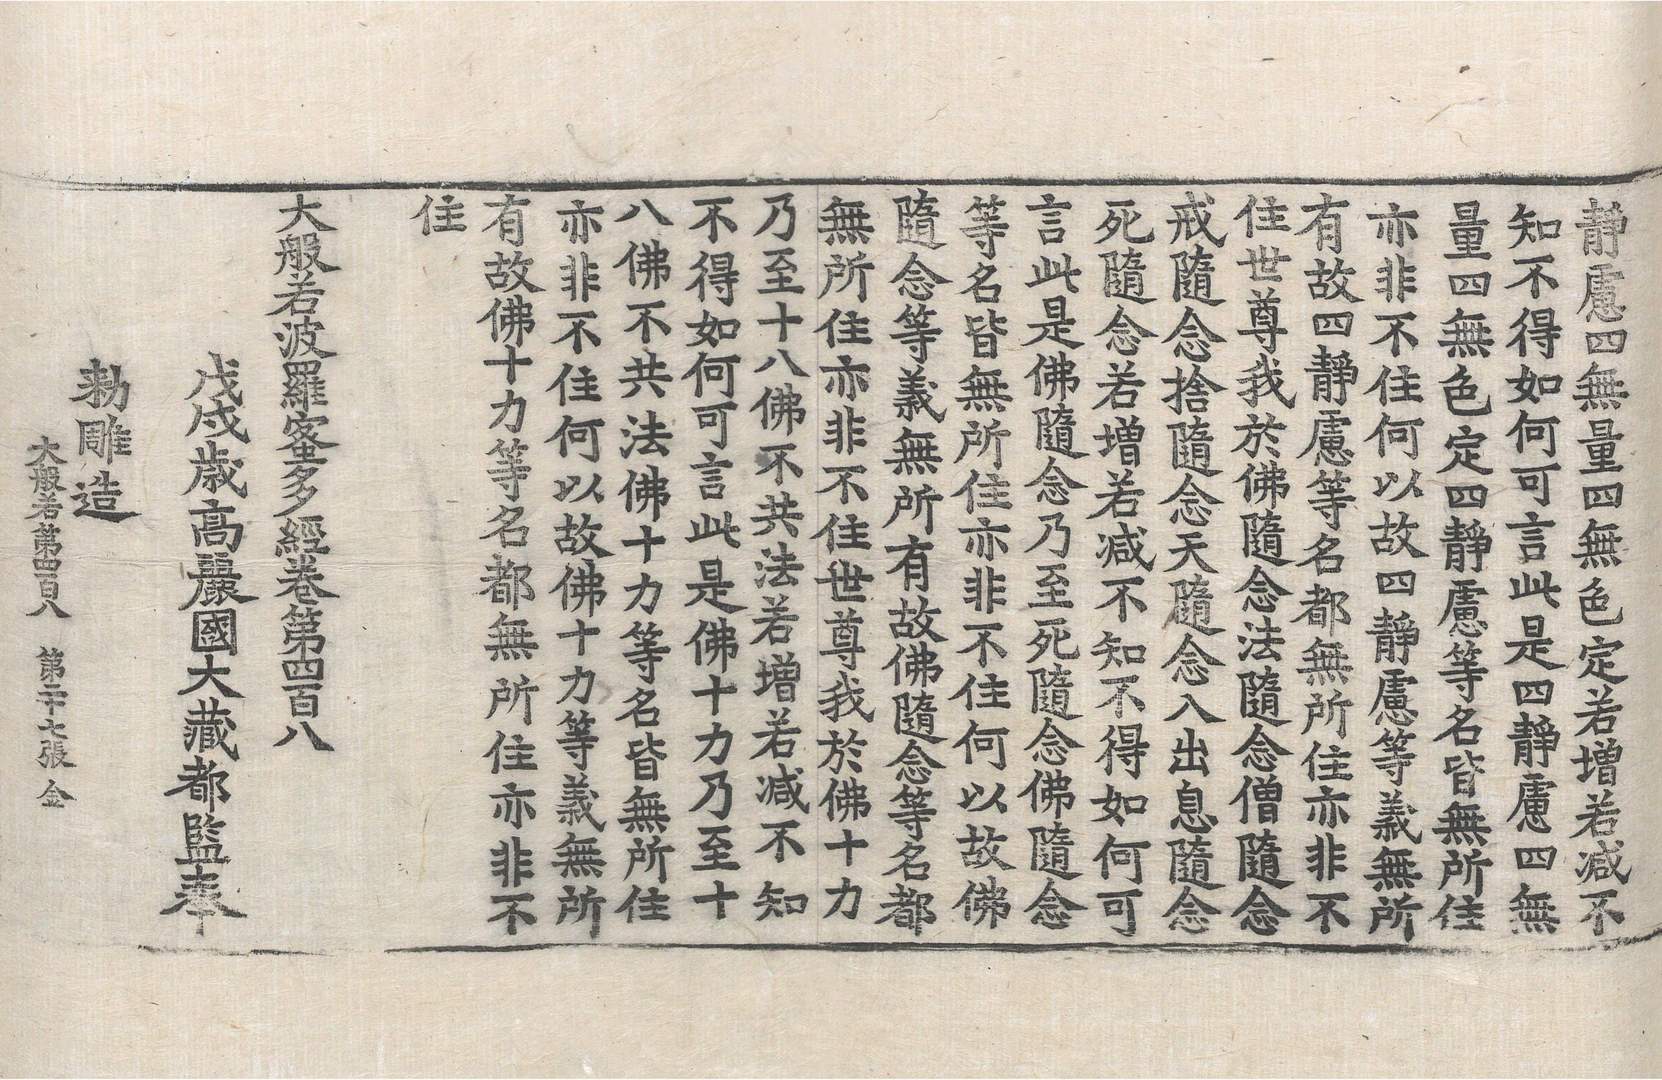 靜慮四無量四無色定若增若减不
知不得如何可言此是四靜慮四無
量四無色定四靜慮等名皆無所住
亦非不住何以故四靜慮等義無所
有故四靜慮等名都無所住亦非不
住世尊我於佛隨念法隨念僧隨念
戒隨念捨隨念天隨念入出息隨念
死隨念若增若减不知不得如何可
言此是佛隨念乃至死隨念佛隨念
等名皆無所住亦非不住何以故佛
隨念等義無所有故佛隨念等名都
無所住亦非不住世尊我於佛十力
乃至十八佛不共法若增若减不知
不得如何可言此是佛十力乃至十
八佛不共法佛十力等名皆無所住
亦非不住何以故佛十力等義無所
有故佛十力等名都無所住亦非不
住
大般若波羅蜜多經卷第四百八
戊戌歲高麗國大藏都監奉
勅雕造
大般若第四百八 第二十七張 金